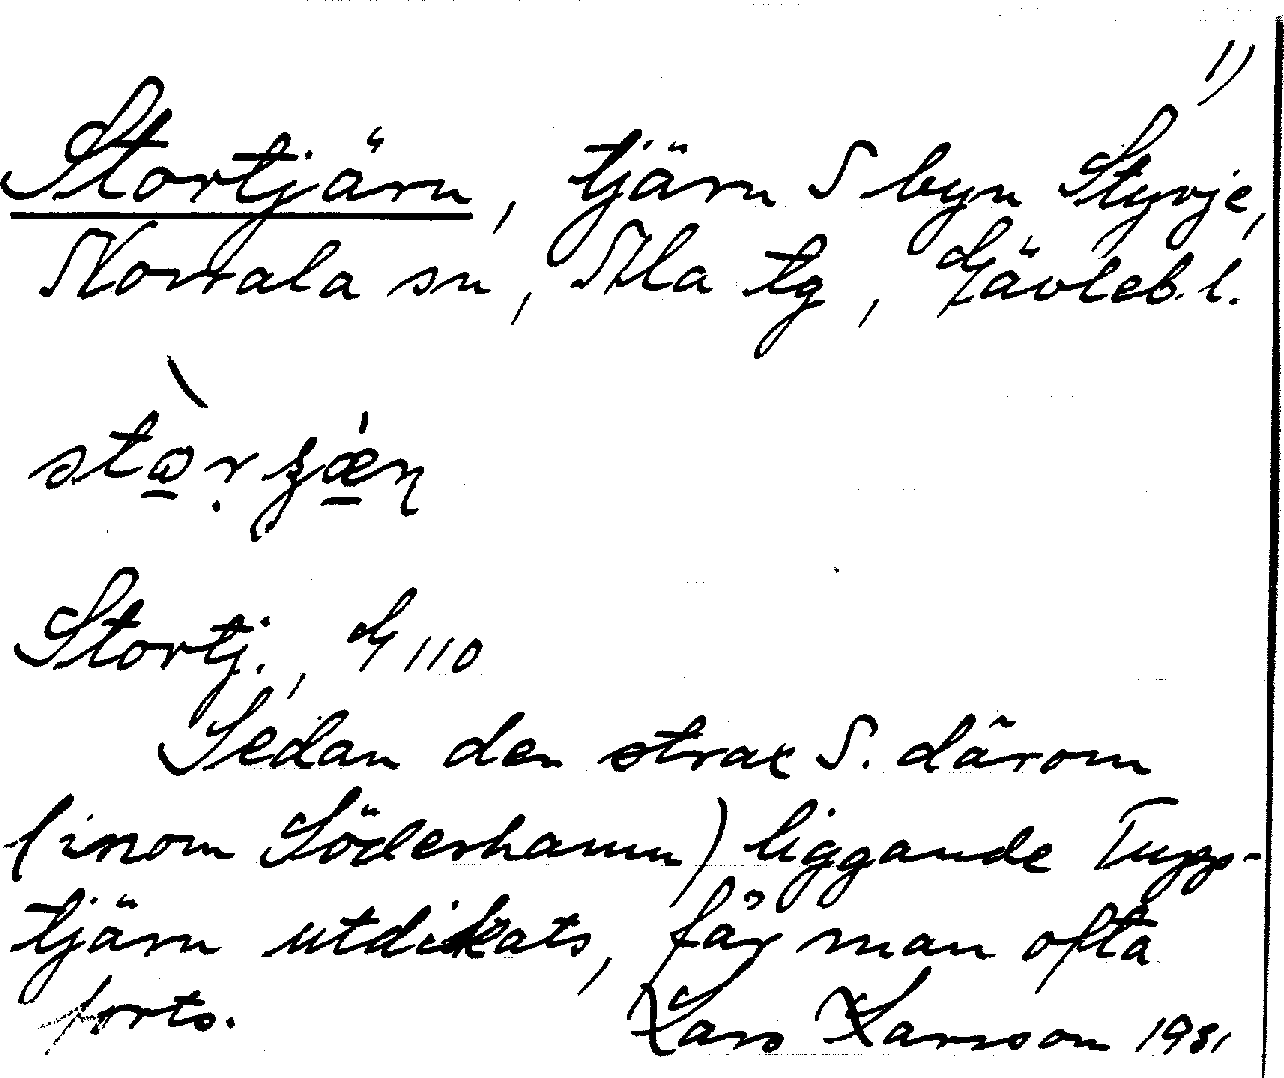 1)
Stortjärn, tjärn S byn Styvje,
Norrala sn, Ala tg, Gävleb. l.
Stortj., G 110
Sedan den strax S. därom
(inom Söderhamn) liggande Tupp-
tjärn utdikats, får man ofta
forts. Lars Larsson 1931